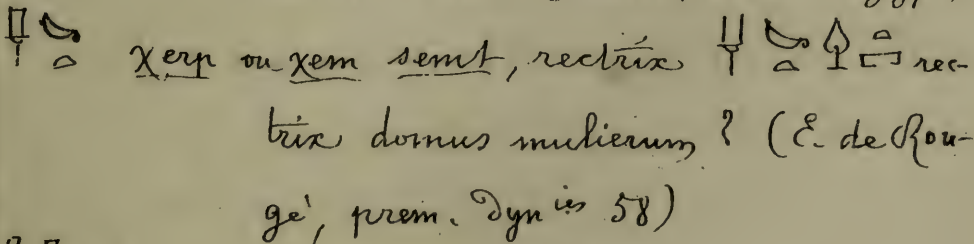 χerp ou χem semt, rectrix rec-
trix domus mulierum ? (E. de Rou-
gé, prem. Dyn ies 58)